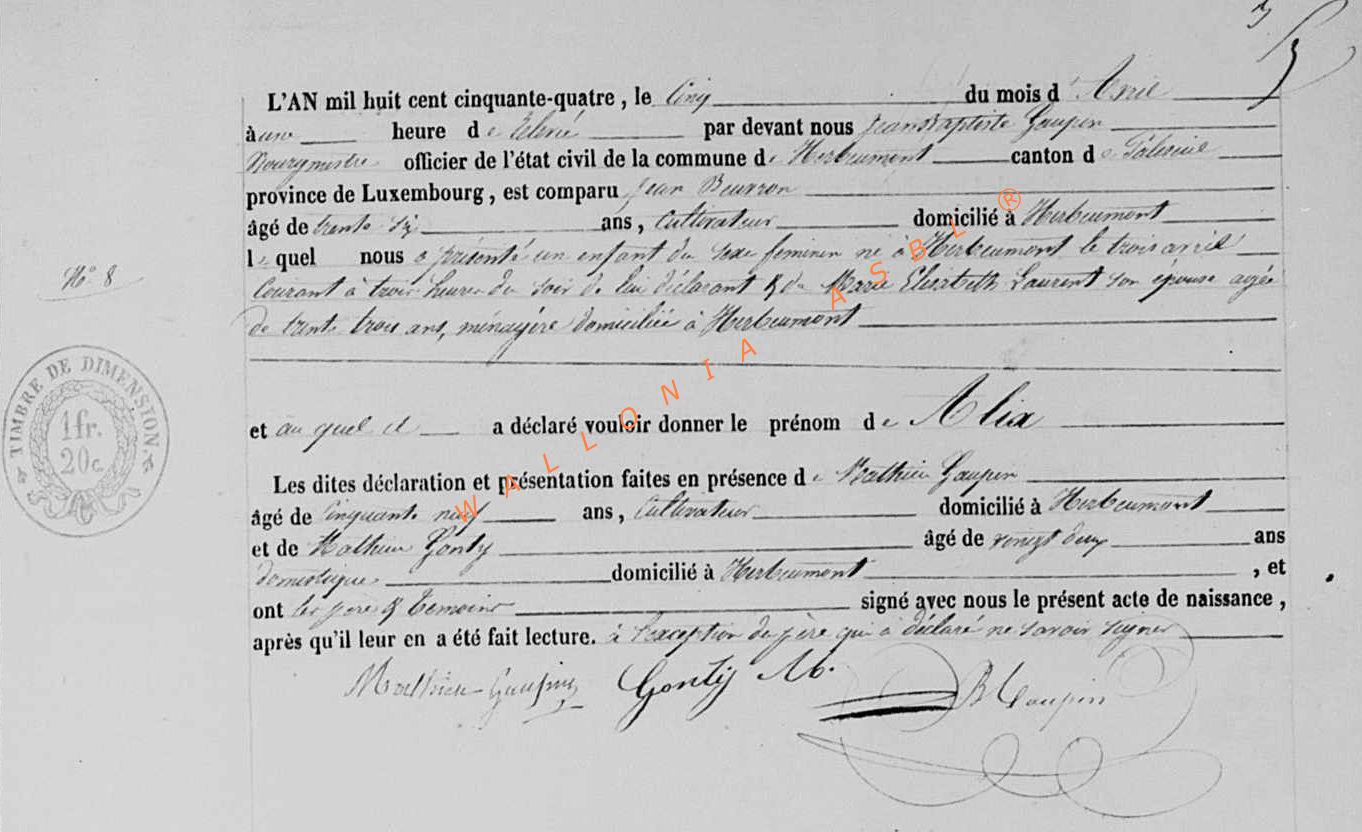 5
L'AN mil huit cent cinquante-quatre, le Cinq du mois d' Avril
à une heure de relevé par devant nous Jean Baptiste Gaupin
Bourgmestre officier de l'état civil de la commune de Herbeumont canton de Paliseul
province de Luxembourg, est comparu Jean Beurron
âgé de trente six ans, Cultivateur domicilié à Herbeumont
lequel nous a présenté un enfant du sexe feminin né à Herbeumont le trois avril
Courant à trois heures du soir de lui déclarant & de Marie Elisabeth Laurent son épouse agée
de trente trois ans, ménagère domiciliée à Herbeumont
N° 8
TIMBRE DE DIMENSION
1 fr.
20 c.
et au quel il a déclaré vouloir donner le prénom de Alix
Les dites déclaration et présentation faites en présence de Mathieu Gaupin
âgé de Cinquante neuf ans, Cultivateur domicilié à Herbeumont
et de Mathieu Gonty âgé de vingt deux ans
domestique domicilié à Herbeumont, et
ont les père & témoins signé avec nous le présent acte de naissance,
après qu'il leur en a été fait lecture. à l'exception du père qui a déclaré ne savoir signer
Mathieu Gaupin Gonty M. JB Gaupin
WALLONIA ASBL ®